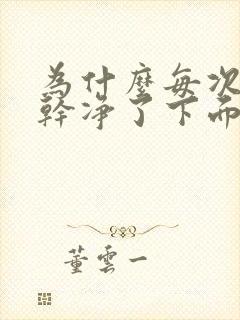 為什麼每次
幹凈了下面
董雲一